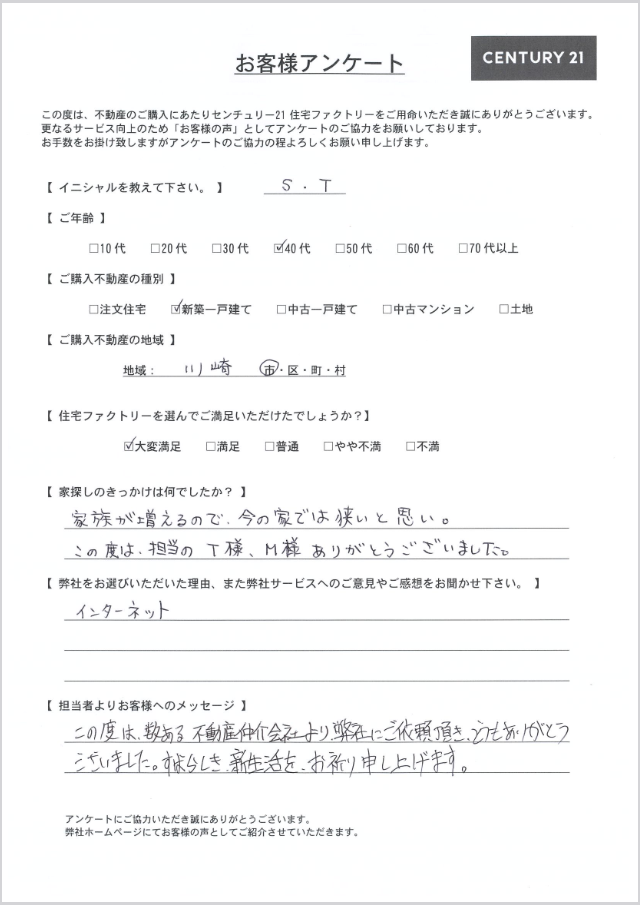 お客様アンケート
CENTURY 21
この度は、不動産のご購入にあたりセンチュリー21 住宅ファクトリーをご用命いただき誠にありがとうございます。
更なるサービス向上のため「お客様の声」としてアンケートのご協力をお願いしております。
お手数をお掛け致しますがアンケートのご協力の程よろしくお願い申し上げます。
【 イニシャルを教えて下さい。 】 S . T
【 ご年齢 】
□10代 □20代 □30代 ☑40代 □50代 □60代 □70代以上
【 ご購入不動産の種別 】
□注文住宅 ☑新築一戸建て □中古一戸建て □中古マンション □土地
【 ご購入不動産の地域 】
地域： 川崎 市・区・町・村
【 住宅ファクトリーを選んでご満足いただけたでしょうか？】
☑大変満足 □満足 □普通 □やや不満 □不満
【 家探しのきっかけは何でしたか？ 】
家族が増えるので、今の家では狭いと思い。
この度は、担当の T様、M様 ありがとうございました。
【 弊社をお選びいただいた理由、また弊社サービスへのご意見やご感想をお聞かせ下さい。 】
インターネット
【 担当者よりお客様へのメッセージ 】
この度は、数ある不動産仲介会社より、弊社にご依頼頂き、とてもありがとう
ございました。すばらしき、新生活を、お祈り申し上げます。
アンケートにご協力いただき誠にありがとうございます。
弊社ホームページにてお客様の声としてご紹介させていただきます。